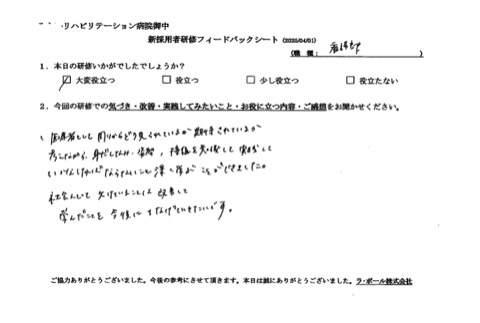 リハビリテーション病院御中
新採用者研修フィードバックシート (2025/04/01)
(職 種： 看護部 )
1．本日の研修いかがでしたでしょうか？
☑ 大変役立つ □ 役立つ □ 少し役立つ □ 役立たない
2．今回の研修での気づき・改善・実践してみたいこと・お役に立つ内容・ご感想をお聞かせください。
医療者として 周りからどう見られているか 期待されているか
考えながら、身だしなみ・姿勢、 を 意識して 実践して
いかなければならないこと 深く学ぶ ことができました。
社会人として 欠けていることは 改善して
学んだことを 今後に つなげていきたいです。
ご協力ありがとうございました。今後の参考にさせて頂きます。本日は誠にありがとうございました。ラ・ポール株式会社